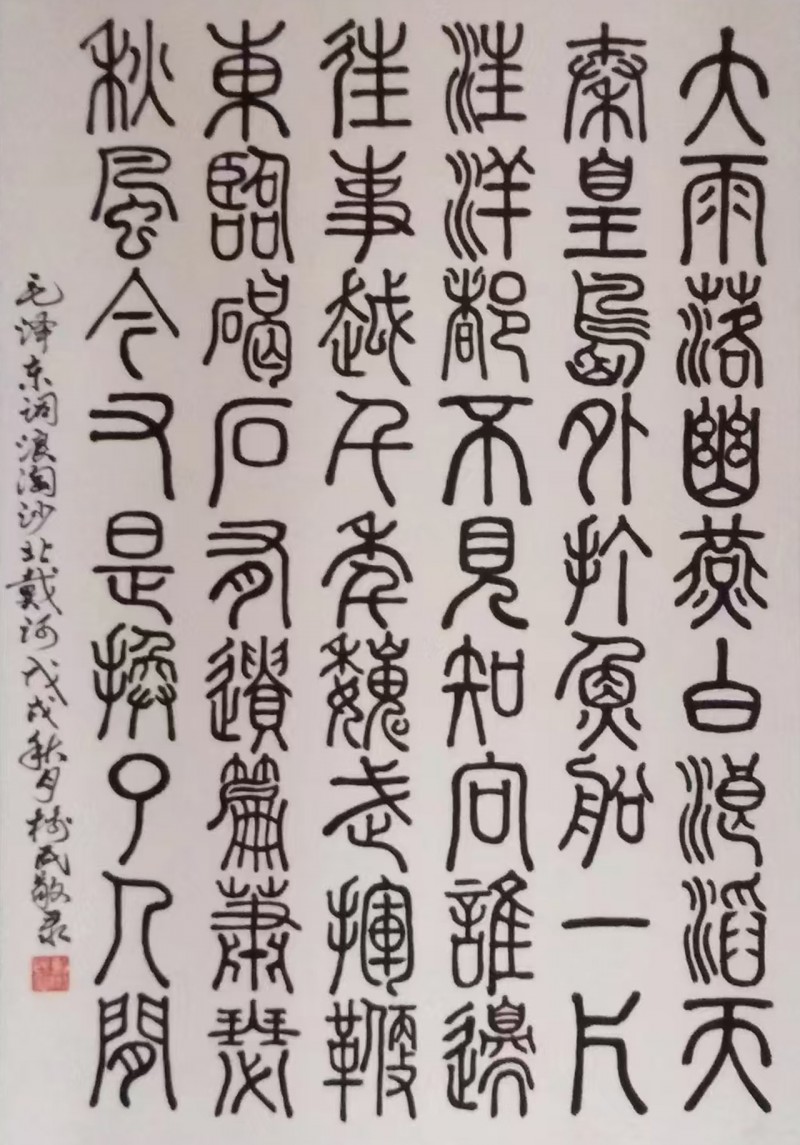 大雨落幽燕白浪滔天
秦皇島外打魚船一片
汪洋都不見知向誰邊
往事越千年魏武揮鞭
東臨碣石有遺篇蕭瑟
秋風今又是換了人間
毛泽东词浪淘沙北戴河戊戌秋月树民敬录